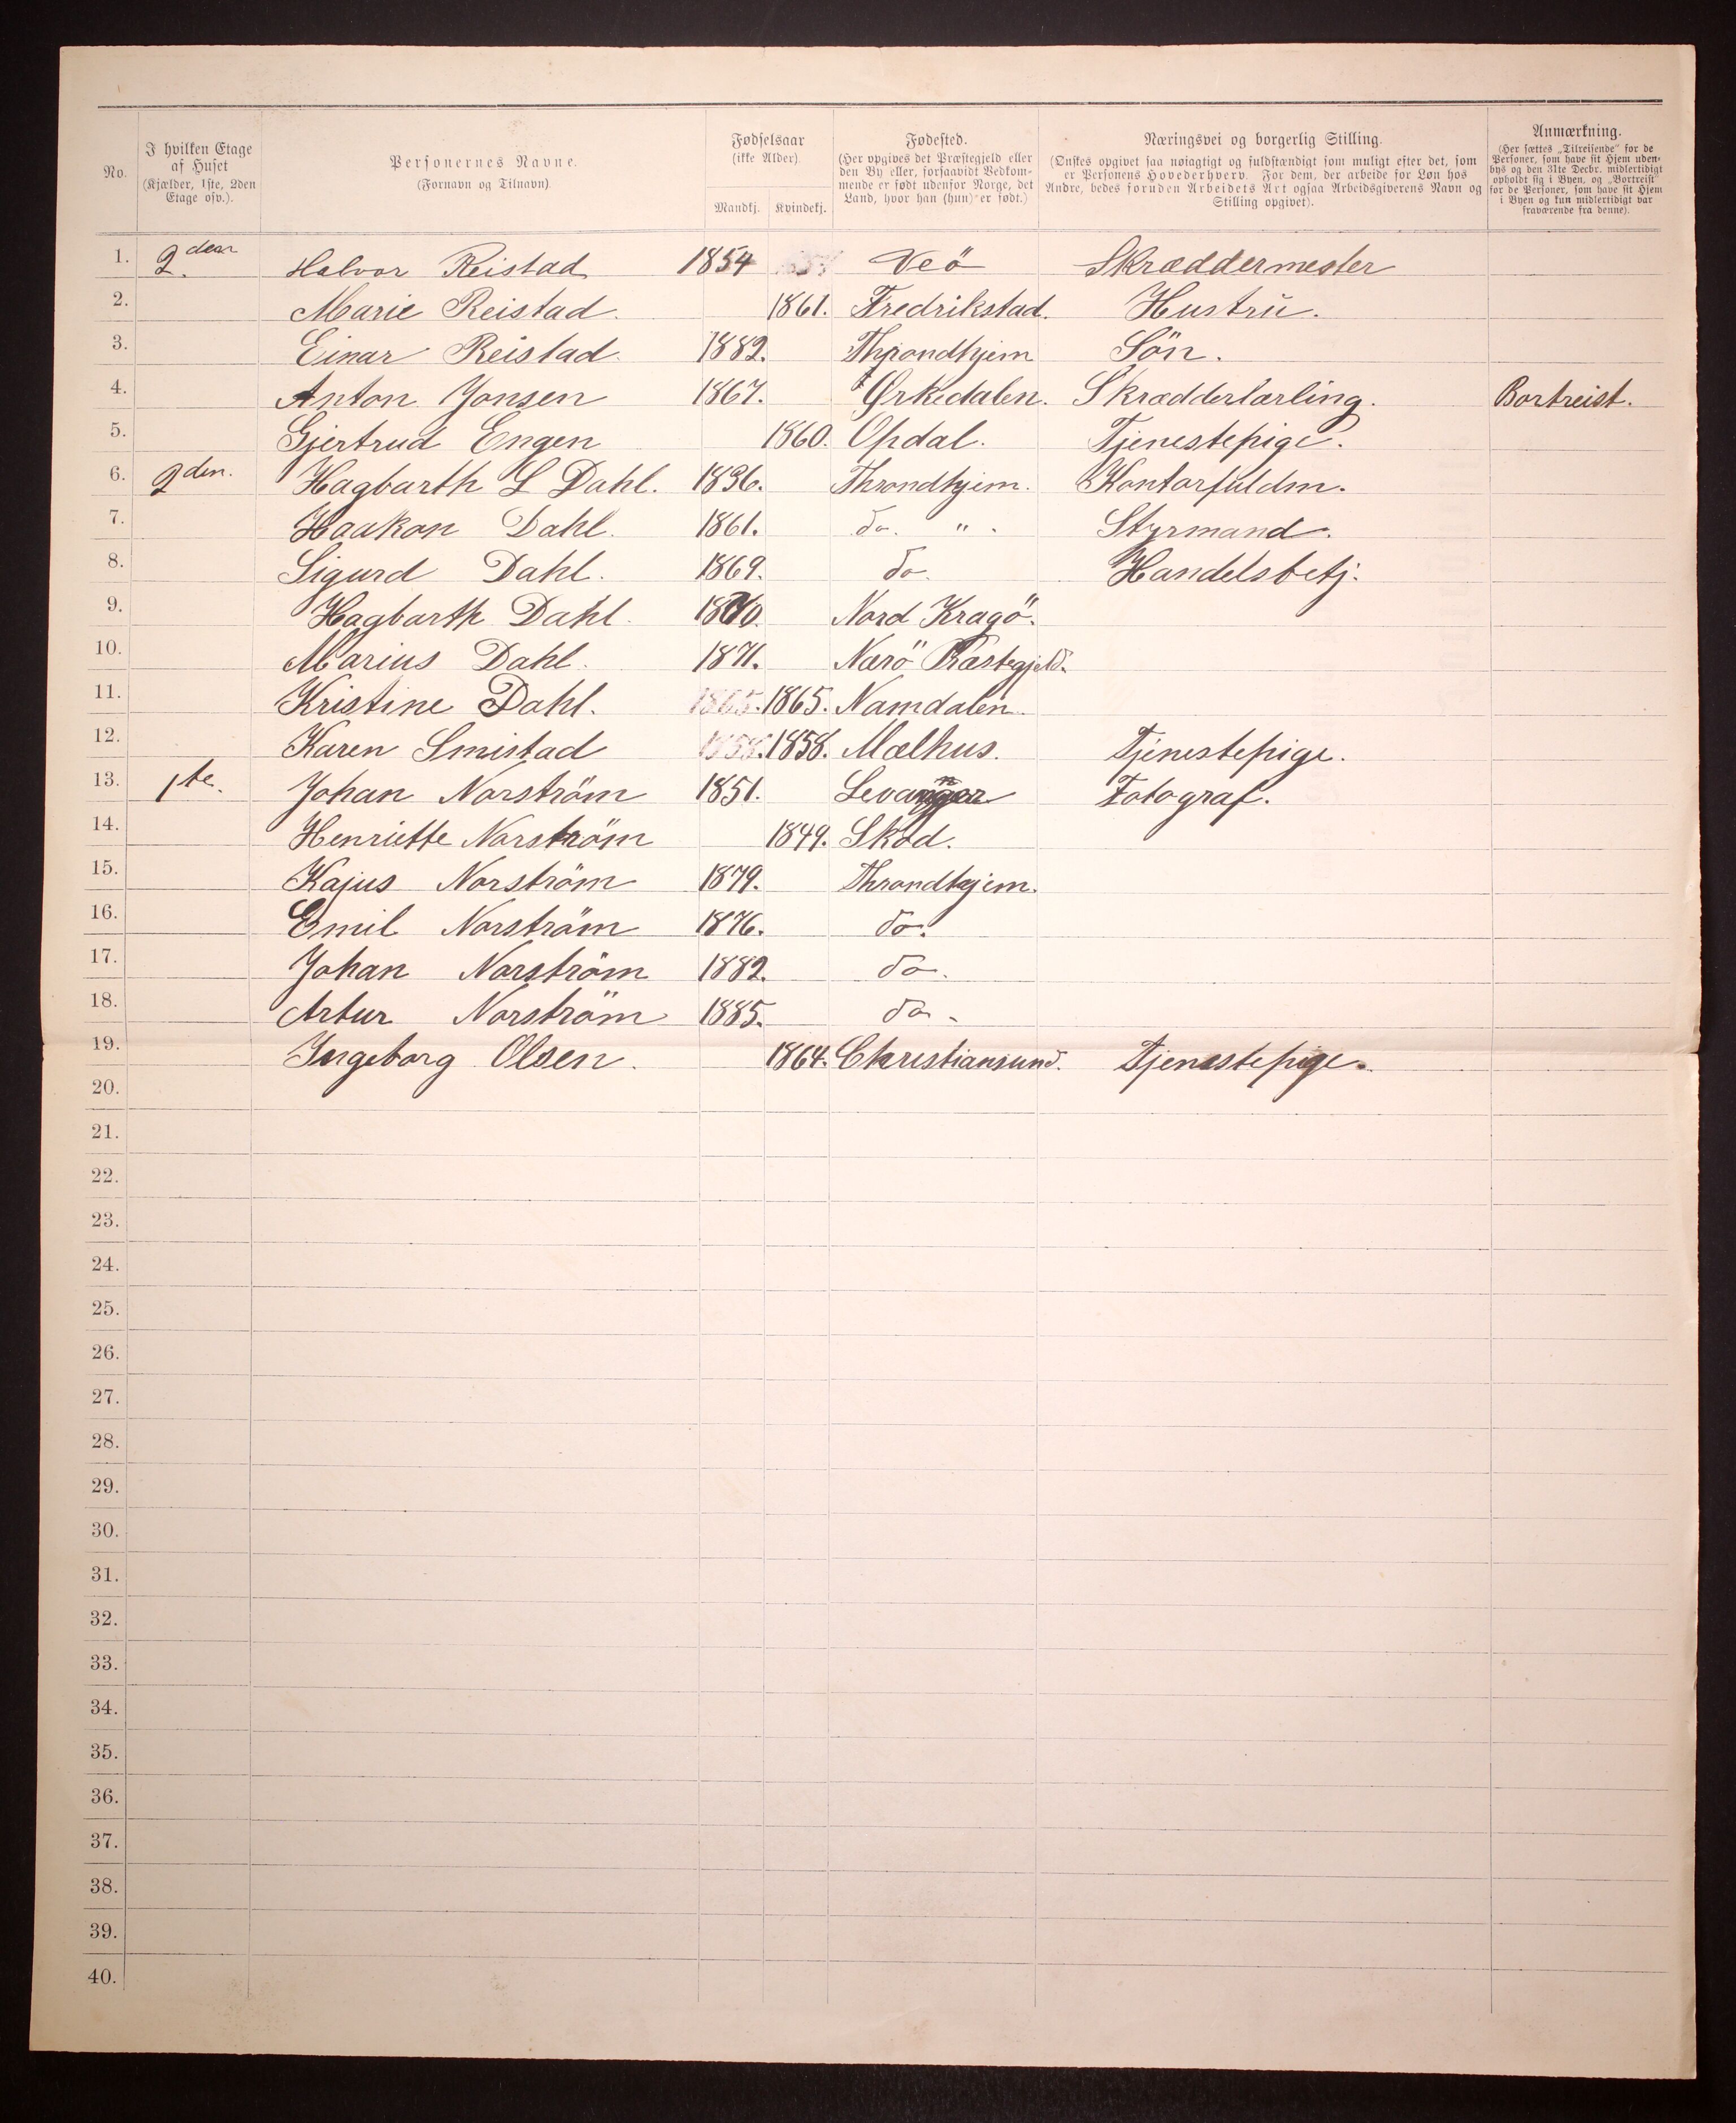 No.
I hvilken Etage
af Huset
(Kjælder, 1ste, 2den
Etage osv.).
Personernes Navne.
(Fornavn og Tilnavn)
Fødselsaar
(ikke Alder)
Mandkj. Kvindekj.
Fødested.
(Her opgives det Præstegjeld eller
den By eller, forsaavidt Vedkom-
mende er født udenfor Norge, det
Land, hvor han (hun) er født.)
Næringsvei og borgerlig Stilling.
(Ønskes opgivet saa nøiagtigt og fuldstændigt som muligt efter det, som
er Personens Hovederhverv. For dem, der arbeide for Løn hos
Andre, bedes foruden Arbeidets Art ogsaa Arbeidsgiverens Navn og
Stilling opgivet).
Anmærkning.
(Her sættes „Tilreisende" for de
Personer, som have sit Hjem uden-
bys og den 31te Decbr. midlertidigt
opholdt sig i Byen, og „Bortreist"
for de Personer, som have sit Hjem
i Byen og kun midlertidigt var
fraværende fra denne).
1. 2den Halvor Reistad 1854 Veö Skræddermester
2. Marie Reistad. 1861. Fredrikstad. Hustru.
3. Einar Reistad. 1882. Throndhjem Sön.
4. Anton Jonsen 1867. Ørkedalen. Skrædderlærling. Bortreist.
5. Gjertrud Engen 1860. Opdal. Tjenestepige.
6. 2den. Hagbarth L Dahl. 1836. Throndhjem. Kontorfuldm.
7. Haakon Dahl. 1861. do. " . Styrmand.
8. Sigurd Dahl. 1869. do. Handelsbetj.
9. Hagbarth Dahl. 1870. Nord Kragö.
10. Marius Dahl. 1871. Nærö Præstegjeld.
11. Kristine Dahl. 1865. 1865. Namdalen.
12. Karen Smistad 1858. 1858. Mælhus. Tjenestepige.
13. 1te. Johan Norström 1851. Levanger Fotograf.
14. Henriette Norström 1849. Skod.
15. Kajus Norström 1879. Throndhjem.
16. Emil Norström 1876. do.
17. Johan Norström 1882. do.
18. Artur Norström 1885. do.
19. Ingeborg Olsen. 1864. Christiansund. Tjenestepige.
20.
21.
22.
23.
24.
25.
26.
27.
28.
29.
30.
31.
32.
33.
34.
35.
36.
37.
38.
39.
40.